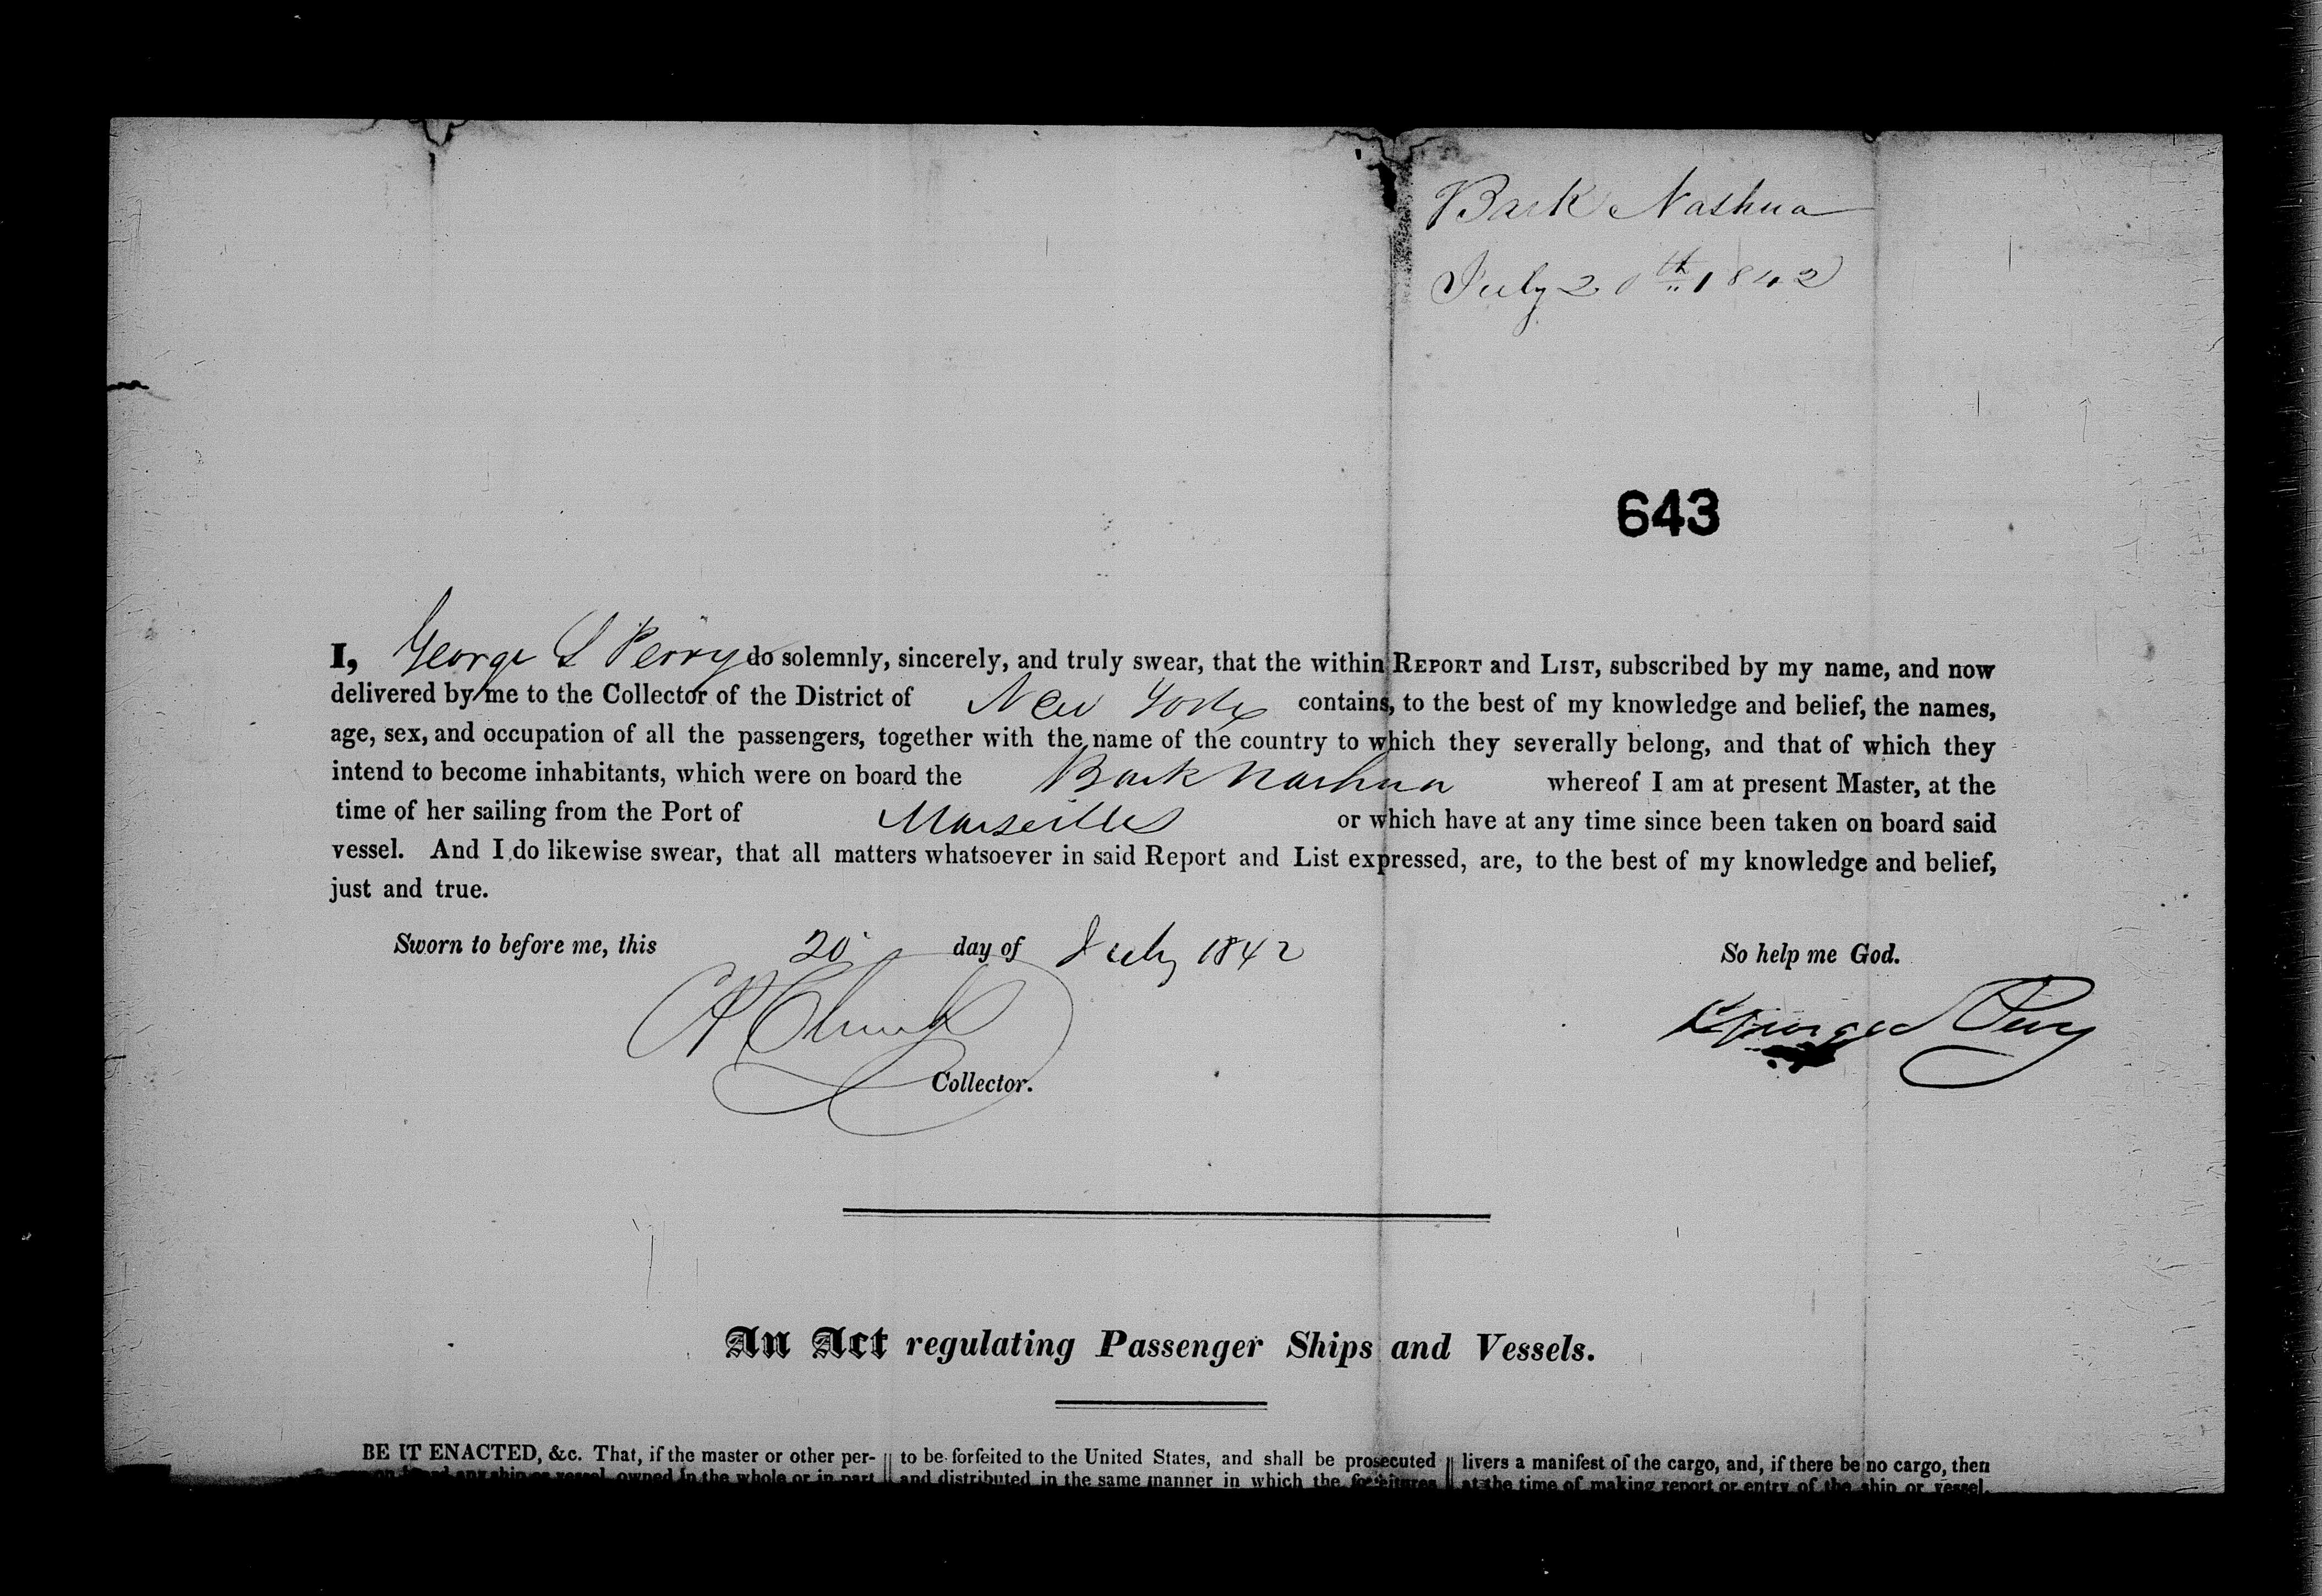 Bark Nashua
July 20th 1842
643
I, George S Perry do solemnly, sincerely, and truly swear, that the within REPORT and LIST, subscribed by my name, and now
delivered by me to the Collector of the District of New York contains, to the best of my knowledge and belief, the names,
age, sex, and occupation of all the passengers, together with the name of the country to which they severally belong, and that of which they
intend to become inhabitants, which were on board the Bark Nashua whereof I am at present Master, at the
time of her sailing from the Port of Marseilles or which have at any time since been taken on board said
vessel. And I do likewise swear, that all matters whatsoever in said Report and List expressed, are, to the best of my knowledge and belief,
just and true.
Sworn to before me, this 20 day of July 1842
So help me God.
George S Perry
Collector.
An Act regulating Passenger Ships and Vessels.
BE IT ENACTED, &c. That, if the master or other per-
owned in the whole or in part
to be forfeited to the United States, and shall be prosecuted
and distributed in the same manner in which the forfeitures
livers a manifest of the cargo, and, if there be no cargo, then
at the time of making report or entry of the ship or vessel,